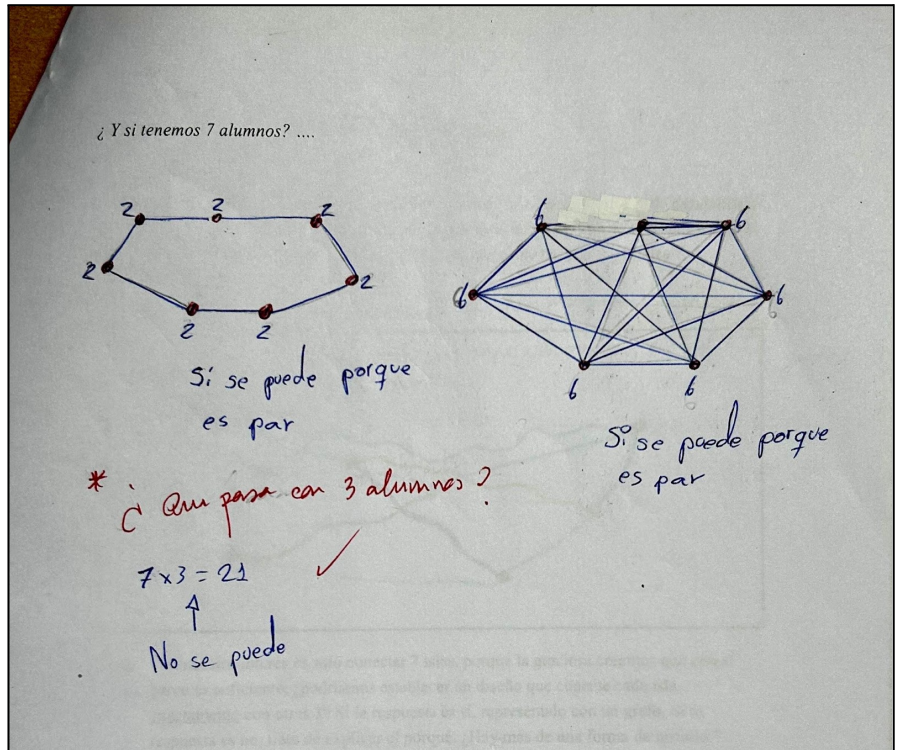 ¿ Y si tenemos 7 alumnos? ....
2 2 2
2 2
2 2
6 6
6 6
6 6
Si se puede porque
es par
Si se puede porque
es par
* ¿ Que pasa con 3 alumnos ?
7 x 3 = 21
No se puede